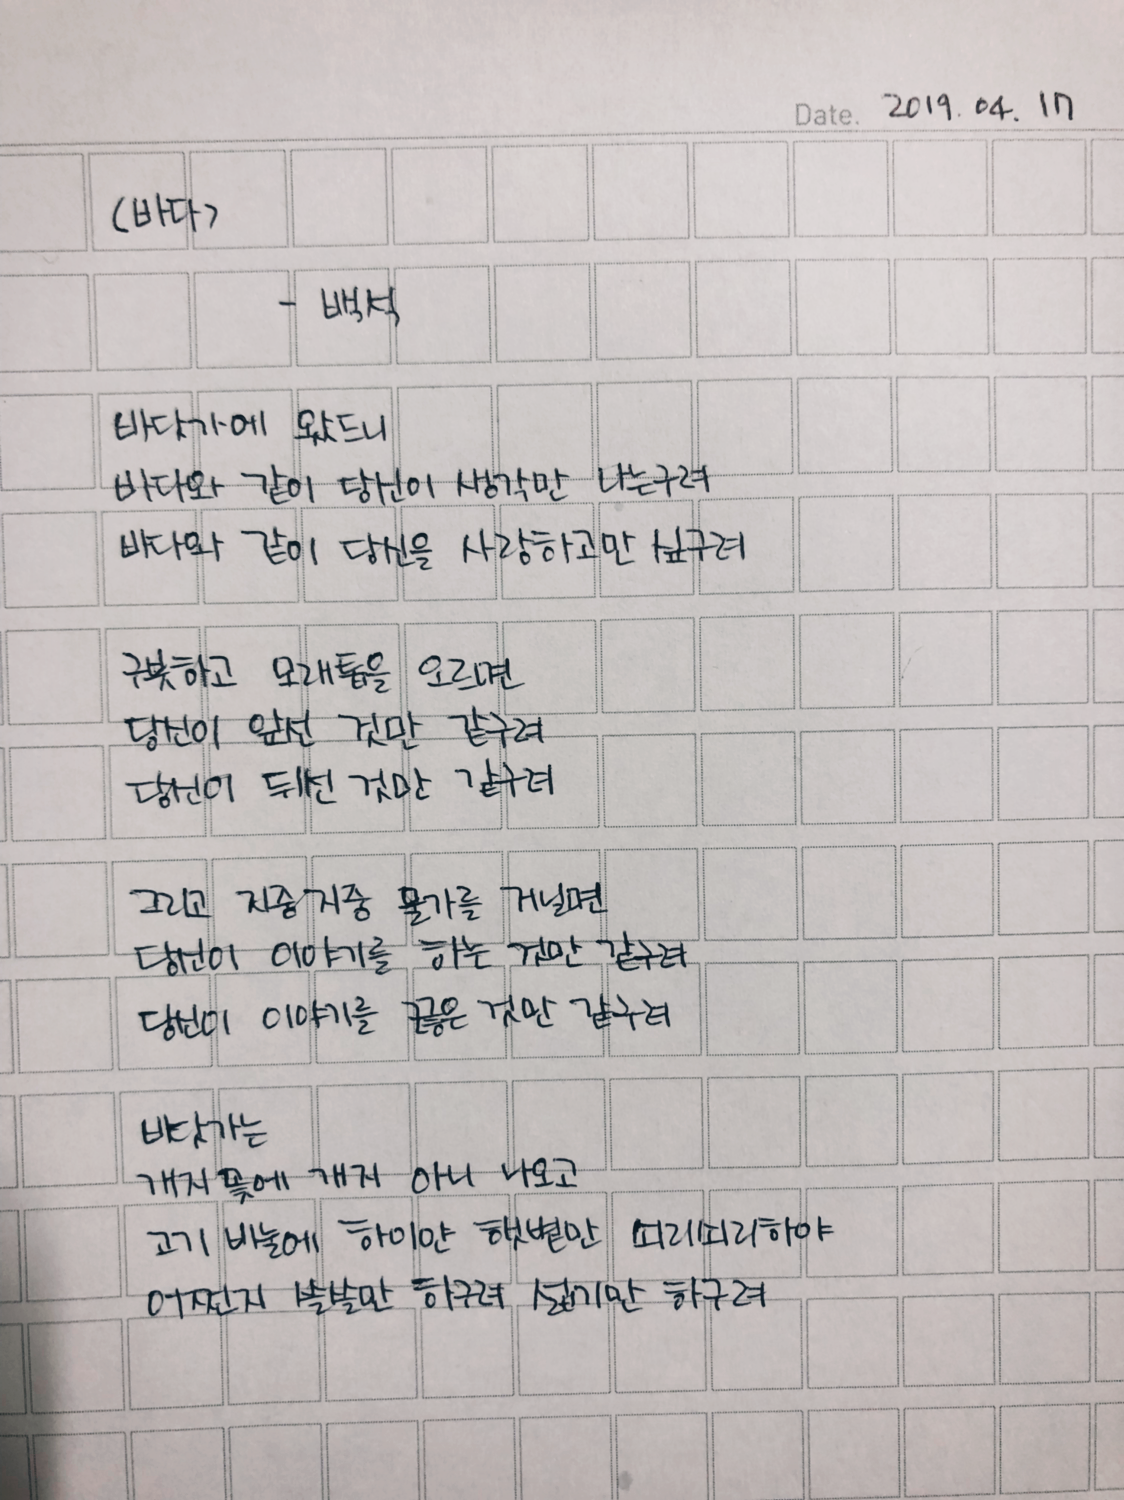 Date. 2019. 04. 17
<바다>
- 백석
바닷가에 왔드니
바다와 같이 당신이 생각만 나는구려
바다와 같이 당신을 사랑하고만 싶구려
구붓하고 모래톱을 오르면
당신이 앞선 것만 같구려
당신이 뒤선 것만 같구려
그리고 지중지중 물가를 거닐면
당신이 이야기를 하는 것만 같구려
당신이 이야기를 끊은 것만 같구려
바닷가는
개지꽃에 개지 아니 나오고
고기 비눌에 하이얀 햇볕만 쇠리쇠리하야
어쩐지 쓸쓸만 하구려 섧기만 하구려